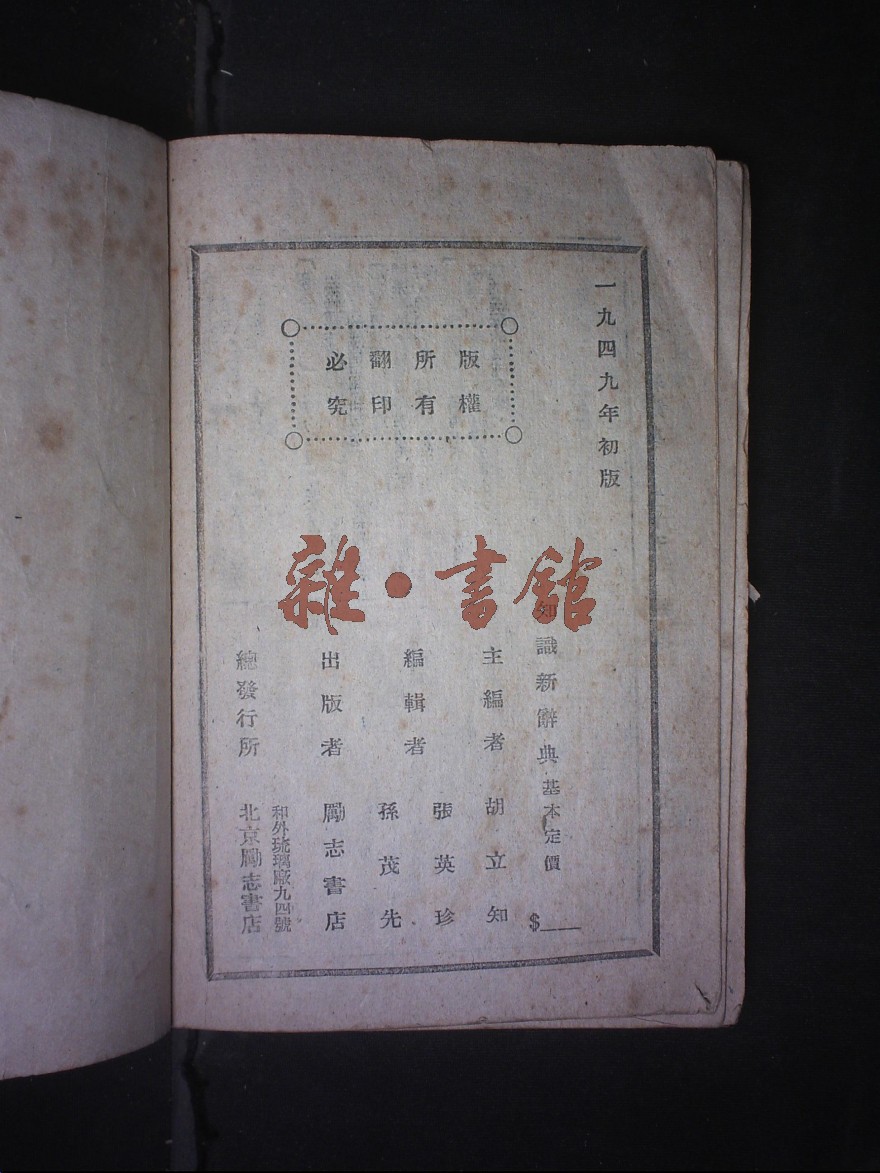 一九四九年初版
版權
所有
翻印
必究
雜·書館
知識新辭典基本定價 $
主編者 胡立知
編輯者 張英珍
孫茂先
出版者 勵志書店
總發行所 和外琉璃廠九四號
北京勵志書店